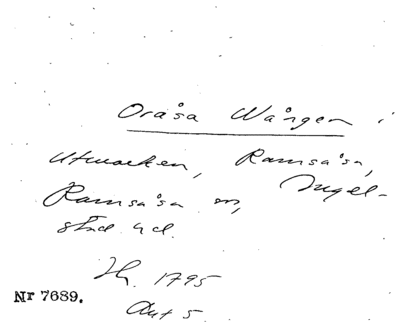 Oråsa Wången i
utmarken, Ramsåsa,
Ramsåsa sn, Ingel-
stad hd.
Ih. 1795
Akt 5.
Nr 7689.